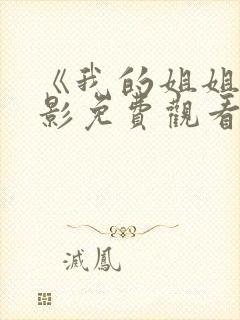 《我的姐姐
影免費觀看
滅鳳